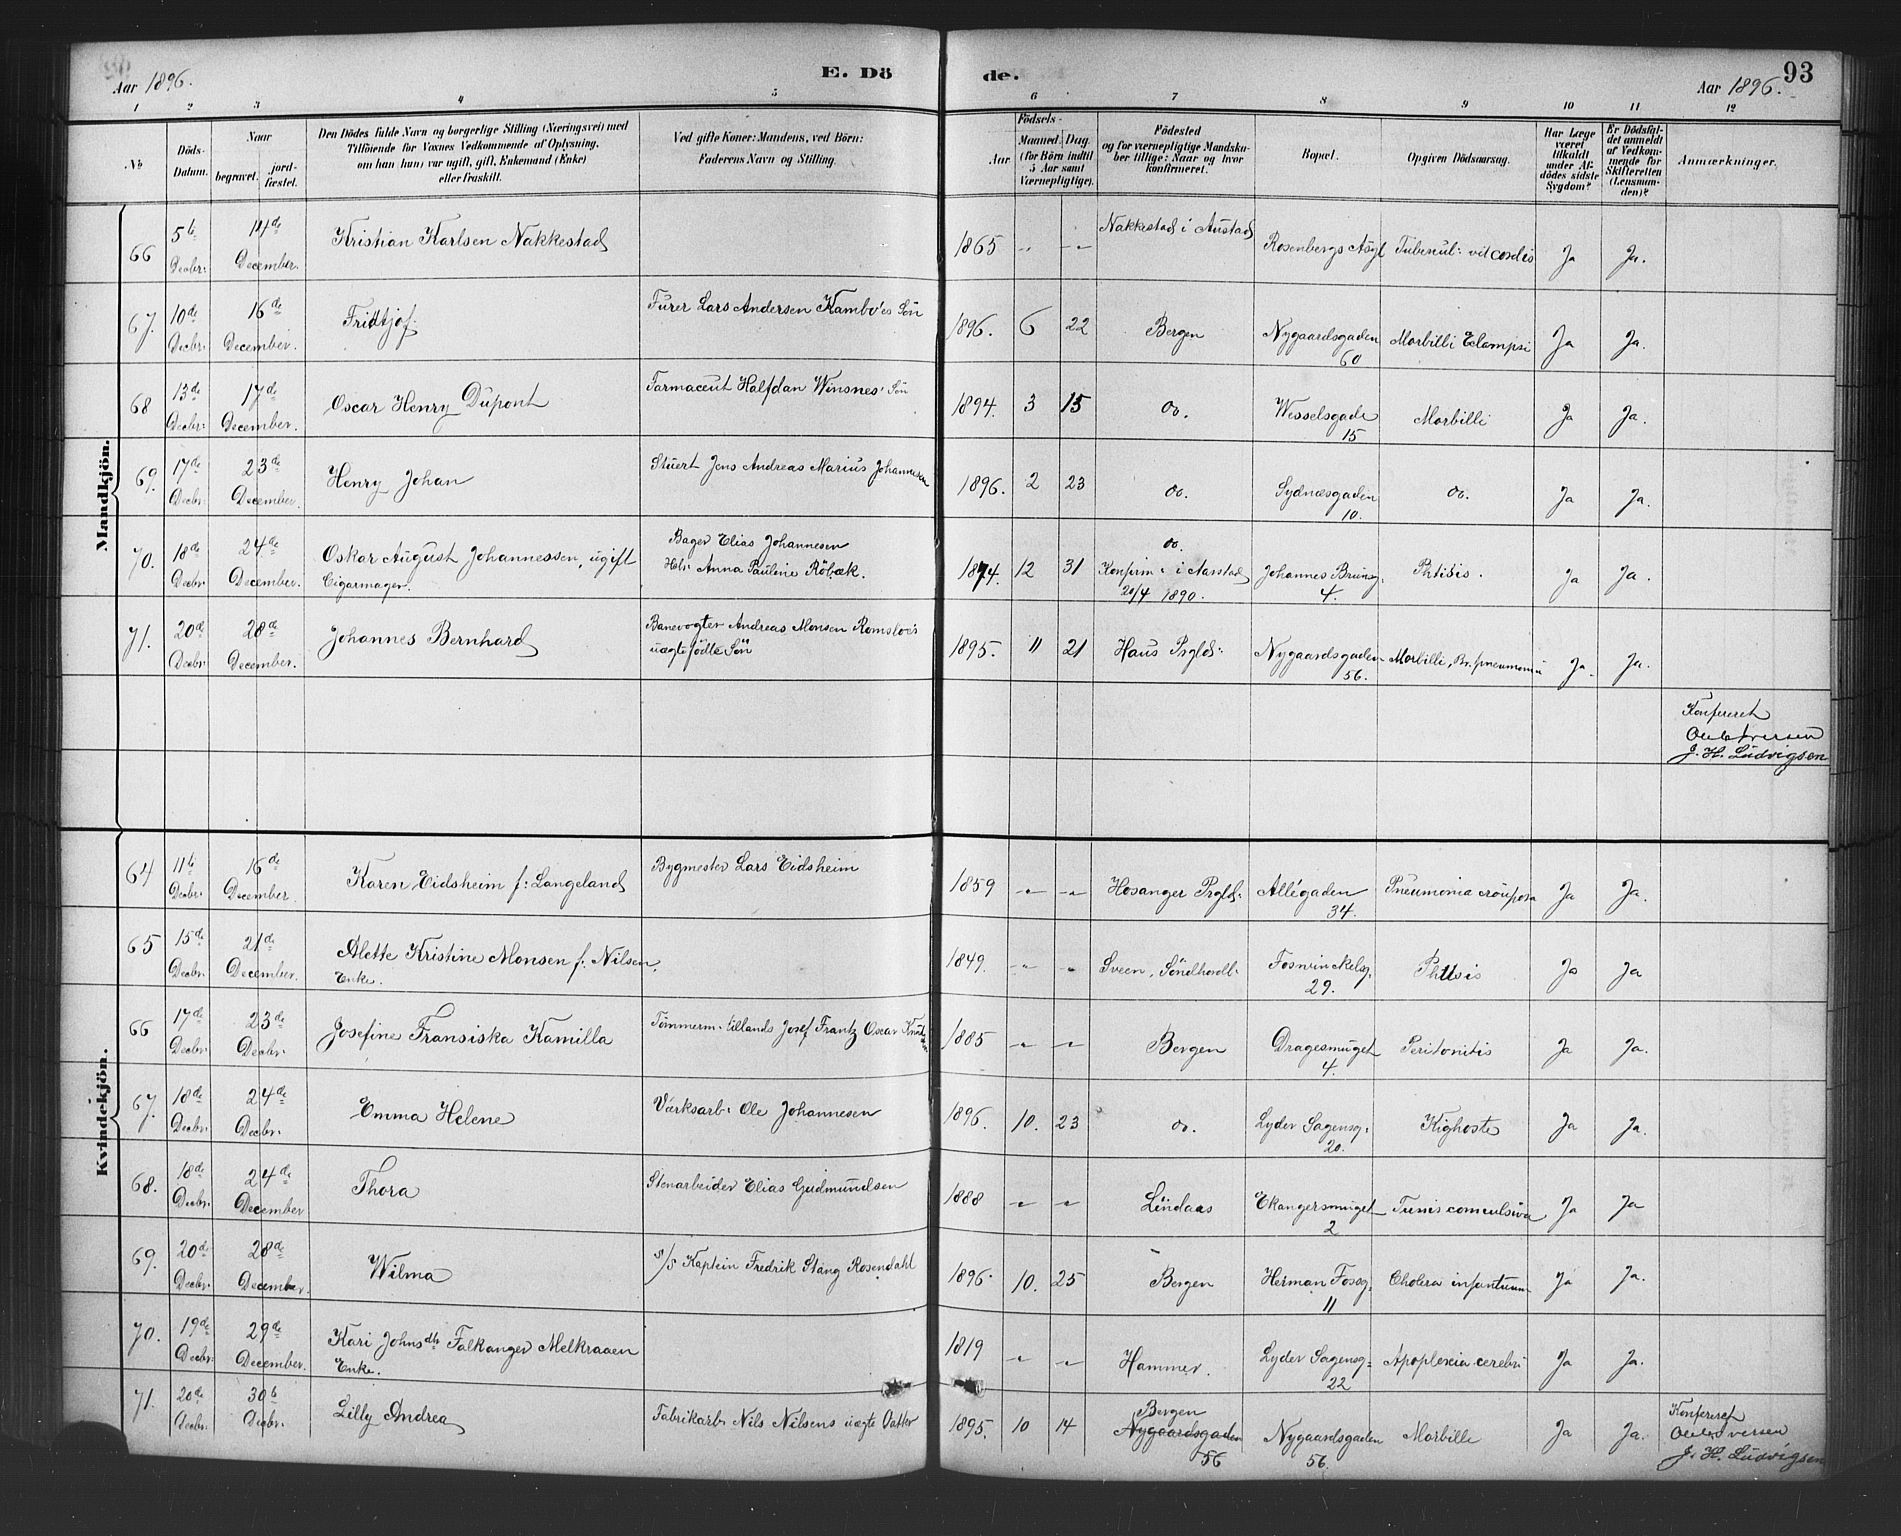 Aar 1896.
E. Dö
de.
Aar 1896.
93
1 2 3 4 5 6 7 8 9 10 11 12
No
Döds-Datum.
Naar
begravet. jord-fæstet.
Den Dödes fulde Navn og borgerlige Stilling (Næringsvei) med
Tilföiende for Voxnes Vedkommende af Oplysning,
om han (hun) var ugift, gift, Enkemand (Enke)
eller fraskilt.
Ved gifte Koner: Mandens, ved Börn:
Faderens Navn og Stilling.
Födsels-
Aar. Maaned Dag
(for Börn indtil
5 Aar samt
Værnepligtige).
Födested
og for værnepligtige Mandska-
ber tillige: Naar og hvor
konfirmeret.
Bopæl.
Opgiven Dödsaarsag.
Har Læge
været
tilkaldt
under Af-
dödes sidste
Sygdom?
Er Dödsfal-
det anmeldt
af Vedkom-
mende for
Skifteretten
(Lensman-
den)?
Anmærkninger.
Mandkjön.
66 5te Decbr: 14de December. Kristian Karlsen Nakkestad 1865 " " Nakkestad i Austad Rosenbergs Asyl Tubercul: vit cordis Ja Ja.
67. 10de Decbr: 16de December. Fridtjof. Furer Lars Andersen Kambo'es Sön 1896. 6 22 Bergen Nygaardsgaden 60 Morbilli Eclampsi Ja Ja.
68 13de Decbr: 17de December. Oscar Henry Dupont Farmaceut Halfdan Winsnes' Sön 1894. 3 15 do. Wesselsgade 15 Morbilli Ja Ja.
69. 17de Decbr. 23de December. Henry Johan Stuert Jens Andreas Marius Johannesen 1896. 2 23 do. Sydnæsgaden 10. do. Ja Ja.
70. 18de Decbr. 24de December. Oskar August Johannessen, ugift Cigarmager. Bager Elias Johannesen Hstr: Anna Pauline Röbæk. 1874. 12 31 do. Konfirm: i Aarstad 20/4 1890. Johannes Brunsg: 4. Phtisis. Ja Ja.
71. 20de Decbr. 28de December. Johannes Bernhard Banevogter Andreas Monsen Romslo'es uægtefödte Sön 1895. 11 21 Haus Prgld: Nygaardsgaden 56. Morbilli, Br. pneumonia Ja. Ja.
Konfereret
Ole Iversen
J. H. Ludvigsen
Kvindekjön.
64 11te Decbr. 16de December. Karen Eidsheim f: Langeland Bygmester Lars Eidsheim 1859 " " Hosanger Prgld: Allégaden 34. Pneumonia crouposa Ja Ja.
65 15de Decbr. 21de December. Alette Kristine Monsen f: Nilsen, Enke. 1849. " " Sveen, Söndhordl. Fosvinckelsg. 29. Phtisis Ja Ja
66 17de Decbr. 23de Decbr. Josefine Fransiska Kamilla Tömmerm: Josef Frantz Oscar 1885 " " Bergen Dragesmuget 4. Peritonitis Ja Ja.
67. 18de Decbr. 24de Decbr. Emma Helene Værksarb: Ole Johannesen 1896. 10. 23 do. Lyder Sagensg: 20. Kighoste Ja Ja.
68. 18de Decbr. 24de December Thora Stenarbeider Elias Gudmundsen 1888 " " Lindaas Ekangersmuget 2 Tussis convulsiva Ja Ja
69. 20de Decbr. 28de December. Wilma s/s Kaptein Fredrik Stang Rosendahl 1896. 10. 25 Bergen Herman Fossg: 11 Cholera infantum Ja Ja.
70. 19de Decbr. 29de December. Kari Johnsdtr Falkanger Melkraaen Enke. 1819 " " Hammer. Lyder Sagensg: 22 Apoplexia cerebri Ja Ja.
71. 20de Decbr. 30te Decbr. Lilly Andrea Fabrikarb. Nils Nilsens uægte Datter 1895. 10 14 Bergen Nygaardsgaden 56 Nygaardsgaden 56. Morbille Ja Ja.
Konfereret
Ole Iversen
J. H. Ludvigsen